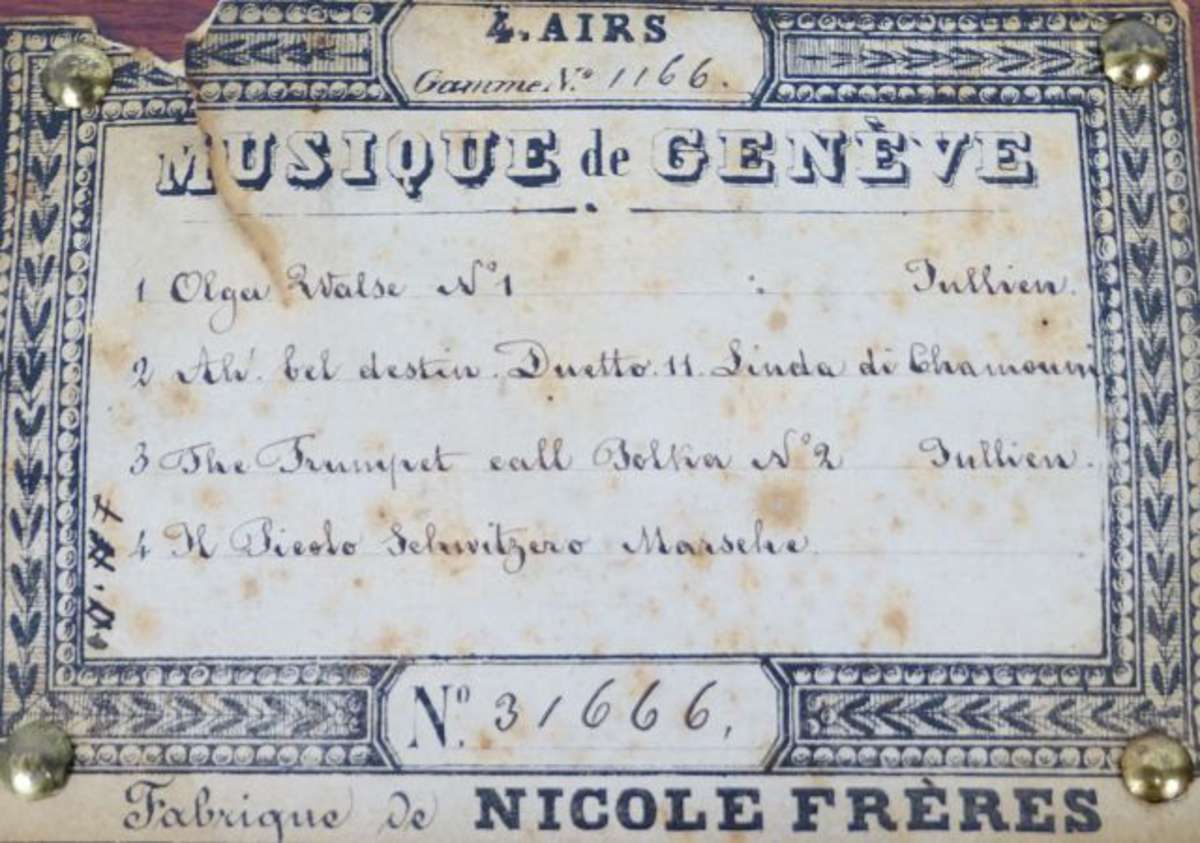 4. AIRS
Gamme N.º 1166.
MUSIQUE de GENÈVE
1 Olga Walse Nº1 : Jullien.
2 Ah! bel destin. Duetto. 11. Linda di Chamouni
3 The Trumpet call Polka Nº2 Jullien.
4 Il Picolo Schwitzero Marsche.
Nº. 31666,
Fabrique de NICOLE FRÈRES